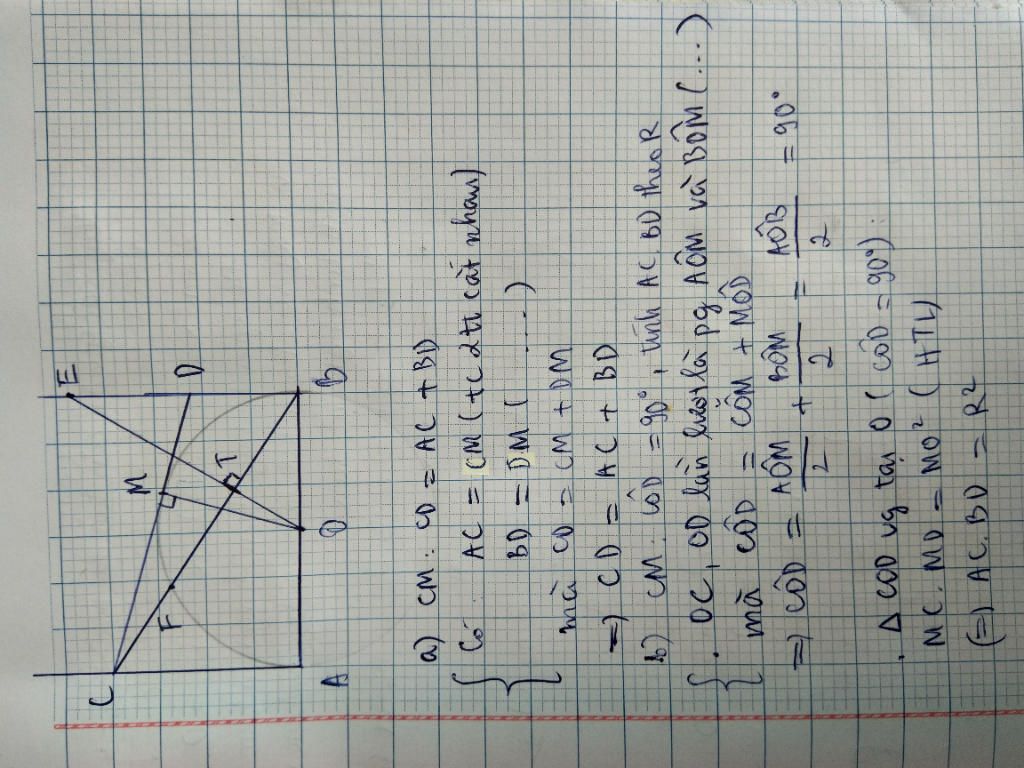 E
C
M
D
F
T
A
O
B
a) CM: CD = AC + BD
Có AC = CM (t/c 2tt cắt nhau)
BD = DM ( ..... )
mà CD = CM + DM
=) CD = AC + BD
b) CM. CÔD = 90°, tính AC BD theo R
. OC, OD lần lượt là pg AÔM và BÔM (...)
mà CÔD = CÔM + MÔD
=) CÔD = AÔM/2 + BÔM/2 = AÔB/2 = 90°
. Δ COD vg tại O ( CÔD = 90°):
MC. MD = MO² ( HTL)
(=) AC. BD = R²